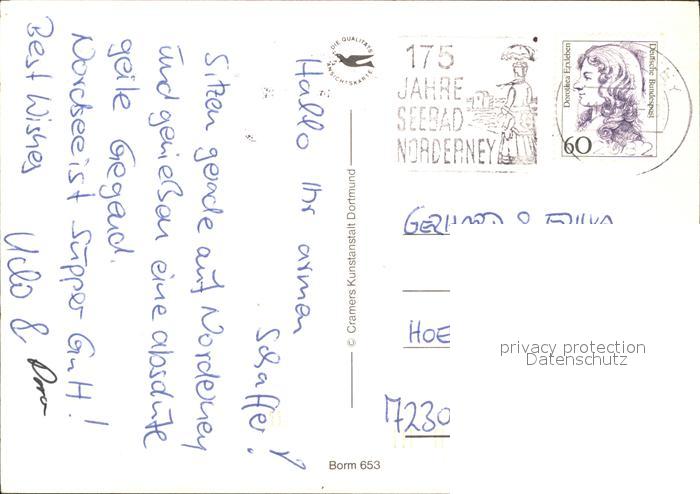 Hallo Ihr armen
Schaffer!
Sitzen gerade auf Norderney
und genießen eine absolute
geile Gegend.
Nordsee ist Supper Gut!
Best Wishes Udo &
DIE QUALITÄTS
ANSICHTSKARTE
© Cramers Kunstanstalt Dortmund
175
JAHRE
SEEBAD
NORDERNEY
Dorothea Erxleben
Deutsche Bundespost
60
GERHARD &
HOE
7230
privacy protection
Datenschutz
Borm 653